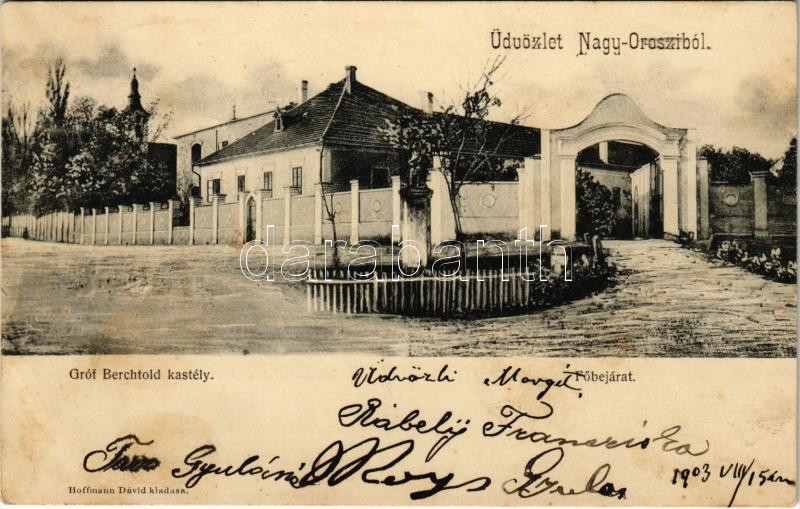 Üdvözlet Nagy-Orosziból.
darabanth
Gróf Berchtold kastély.
Főbejárat.
Üdvözli Margit
Rábely Franciska
Gyuláné Roys Gyula
1903 VIII/15én
Hoffmann Dávid kiadasa.